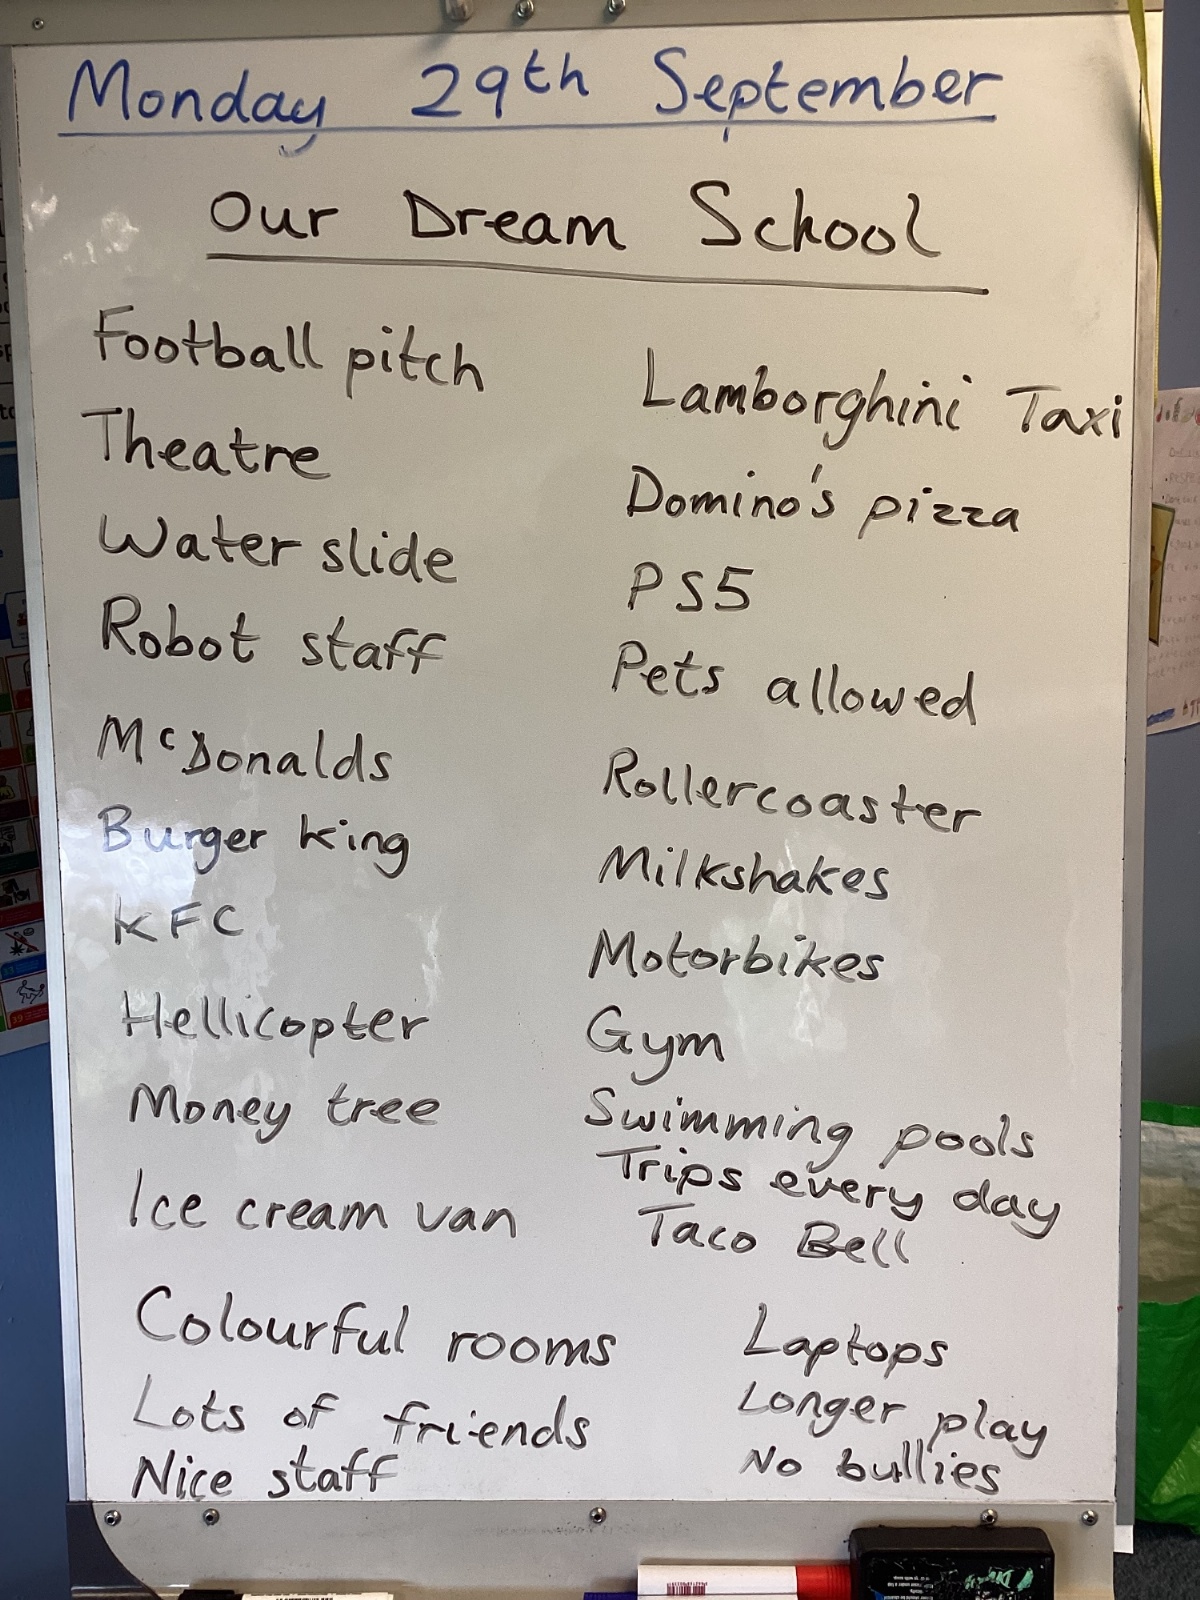 Monday 29th September
Our Dream School
Football pitch
Theatre
Water slide
Robot staff
McDonalds
Burger king
KFC
Hellicopter
Money tree
Ice cream van
Colourful rooms
Lots of friends
Nice staff
Lamborghini Taxi
Domino's pizza
PS5
Pets allowed
Rollercoaster
Milkshakes
Motorbikes
Gym
Swimming pools
Trips every day
Taco Bell
Laptops
Longer play
No bullies